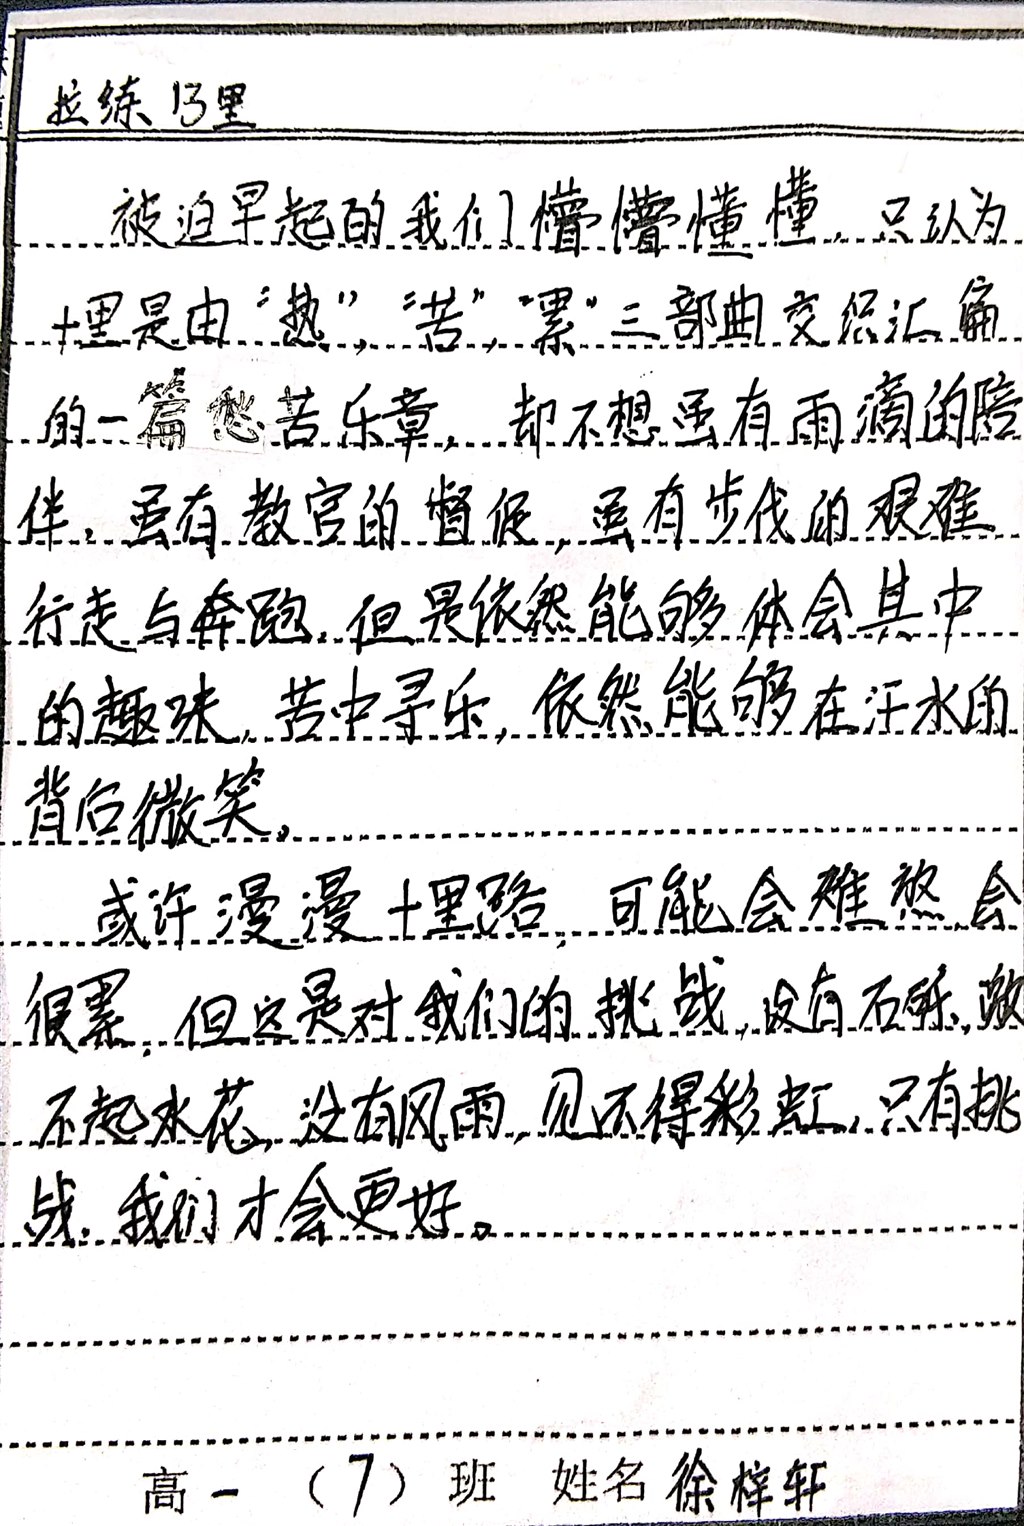 拉练13里
被迫早起的我们懵懵懂懂，只认为
十里是由“热”，“苦”，“累”三部曲交织汇编
的一篇愁苦乐章，却不想虽有雨滴的陪
伴，虽有教官的督促，虽有步伐的艰难
行走与奔跑，但是依然能够体会其中
的趣味，苦中寻乐，依然能够在汗水的
背后微笑。
或许漫漫十里路，可能会难熬，会
很累，但这是对我们的挑战，没有石砾，激
不起水花，没有风雨，见不得彩虹，只有挑
战，我们才会更好。
高一（7）班 姓名徐梓轩